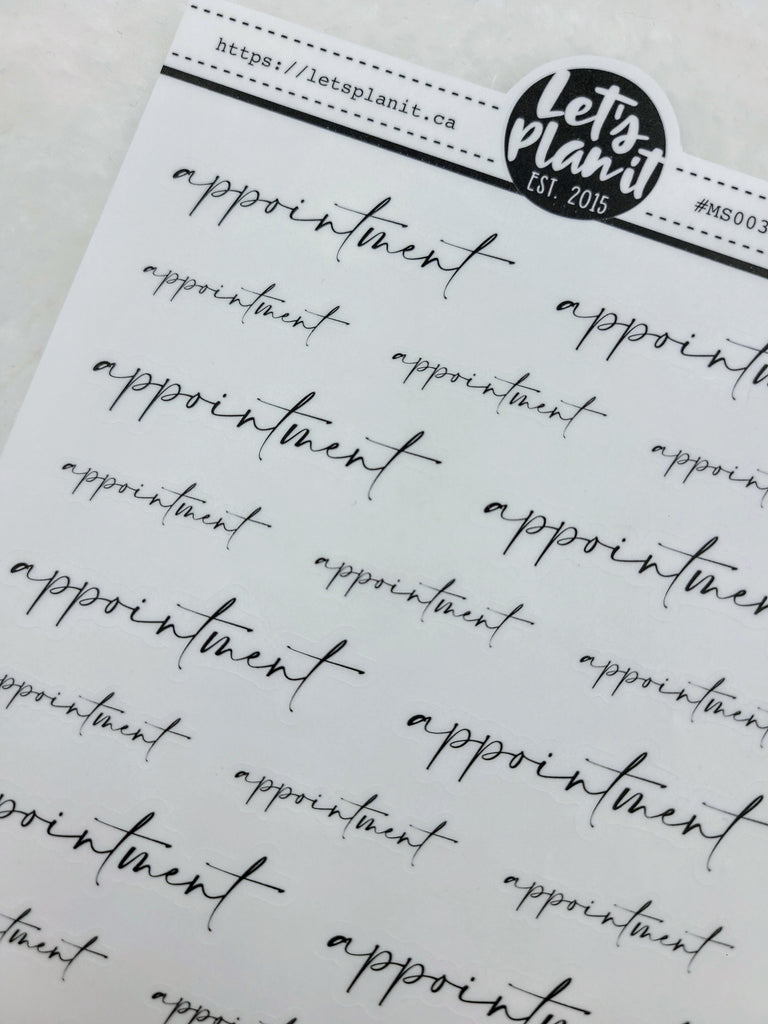 https://letsplanit.ca
Let's
planit
EST. 2015
#MS003
appointment
appointm
appointment
appointment
appoint
appointment
appointmen
appointment
appointment
appointment
appointment
appointment
ppointment
appointment
appointment
ppointment
appointment
tment
appointm
appointment